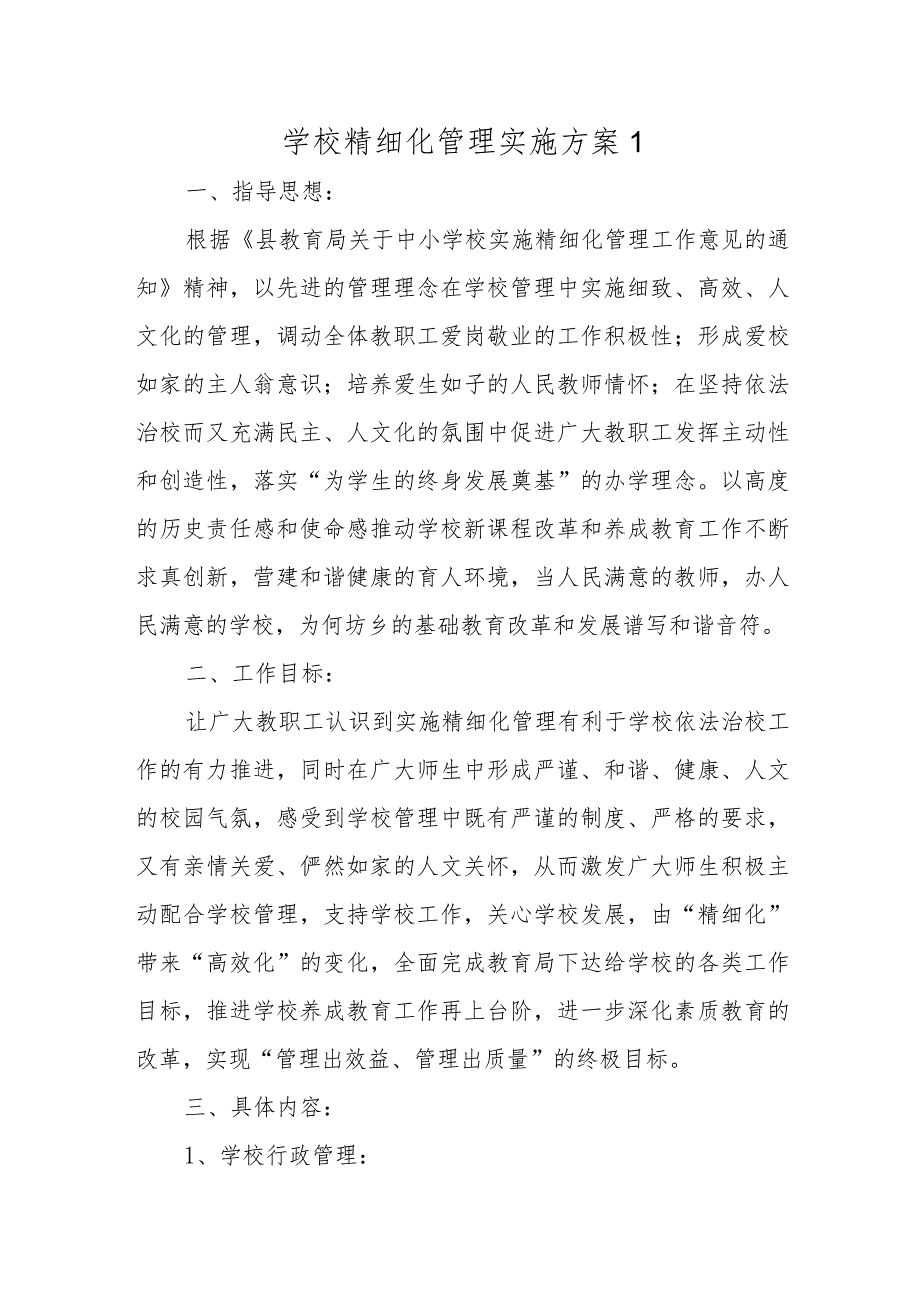 学校精细化管理实施方案1
一、指导思想：
根据《县教育局关于中小学校实施精细化管理工作意见的通
知》精神，以先进的管理理念在学校管理中实施细致、高效、人
文化的管理，调动全体教职工爱岗敬业的工作积极性；形成爱校
如家的主人翁意识；培养爱生如子的人民教师情怀；在坚持依法
治校而又充满民主、人文化的氛围中促进广大教职工发挥主动性
和创造性，落实“为学生的终身发展奠基”的办学理念。以高度
的历史责任感和使命感推动学校新课程改革和养成教育工作不断
求真创新，营建和谐健康的育人环境，当人民满意的教师，办人
民满意的学校，为何坊乡的基础教育改革和发展谱写和谐音符。
二、工作目标：
让广大教职工认识到实施精细化管理有利于学校依法治校工
作的有力推进，同时在广大师生中形成严谨、和谐、健康、人文
的校园气氛，感受到学校管理中既有严谨的制度、严格的要求，
又有亲情关爱、俨然如家的人文关怀，从而激发广大师生积极主
动配合学校管理，支持学校工作，关心学校发展，由“精细化”
带来“高效化”的变化，全面完成教育局下达给学校的各类工作
目标，推进学校养成教育工作再上台阶，进一步深化素质教育的
改革，实现“管理出效益、管理出质量”的终极目标。
三、具体内容：
1、学校行政管理：